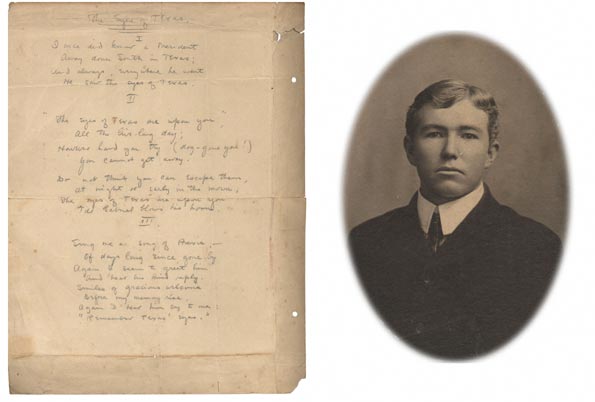 The Eyes of Texas.
I
I once did know a President
Away down South in Texas;
And always, everywhere he went
He saw the eyes of Texas.
II
"The eyes of Texas are upon you,"
All the live long day;
However hard you try (dog-gone you!)
You cannot get away.
Do not think you can escape them,
At night or early in the morn,
The eyes of Texas are upon you
Gabriel blows his horn.
III
Sing me a song of
Of days long since gone by
Again I seem to greet him
And hear his kind reply.
Smiles of gracious welcome
Before my memory rise
Again I hear him say to me:
"Remember Texas' Eyes."